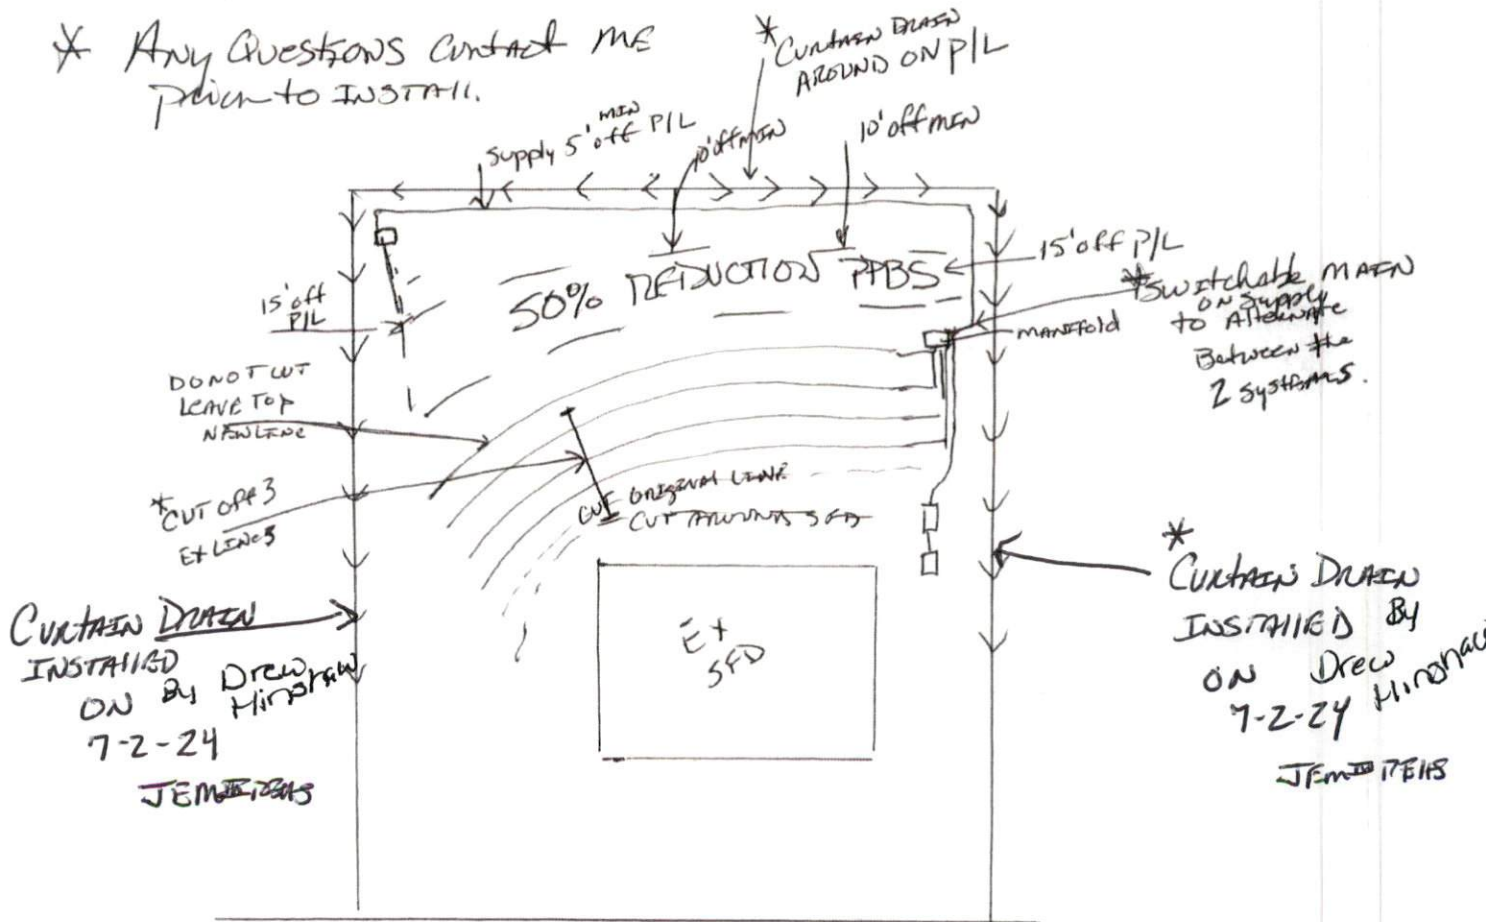 * Any Questions contact me
prior to INSTAll.
* CURTAIN DRAIN
AROUND ON P/L
Supply 5' off P/L
MIN
10' off MIN
10' off MIN
15' off P/L
15' off
P/L
50% REDUCTION PPBS
* Switchable MAIN
on supply
to Alternate
Between the
2 systems.
MANIfold
DO NOT CUT
LEAVE TOP
NEW LINE
* CUT OFF 3
EX LINES
CUT ORIGINAL LINE
CUT AROUND SFD
EX
SFD
CURTAIN DRAIN
INSTAllED
ON By Drew
Hinshaw
7-2-24
JEM III REHS
*
CURTAIN DRAIN
INSTAllED By
ON Drew
7-2-24 Hinshaw
JEM III REHS